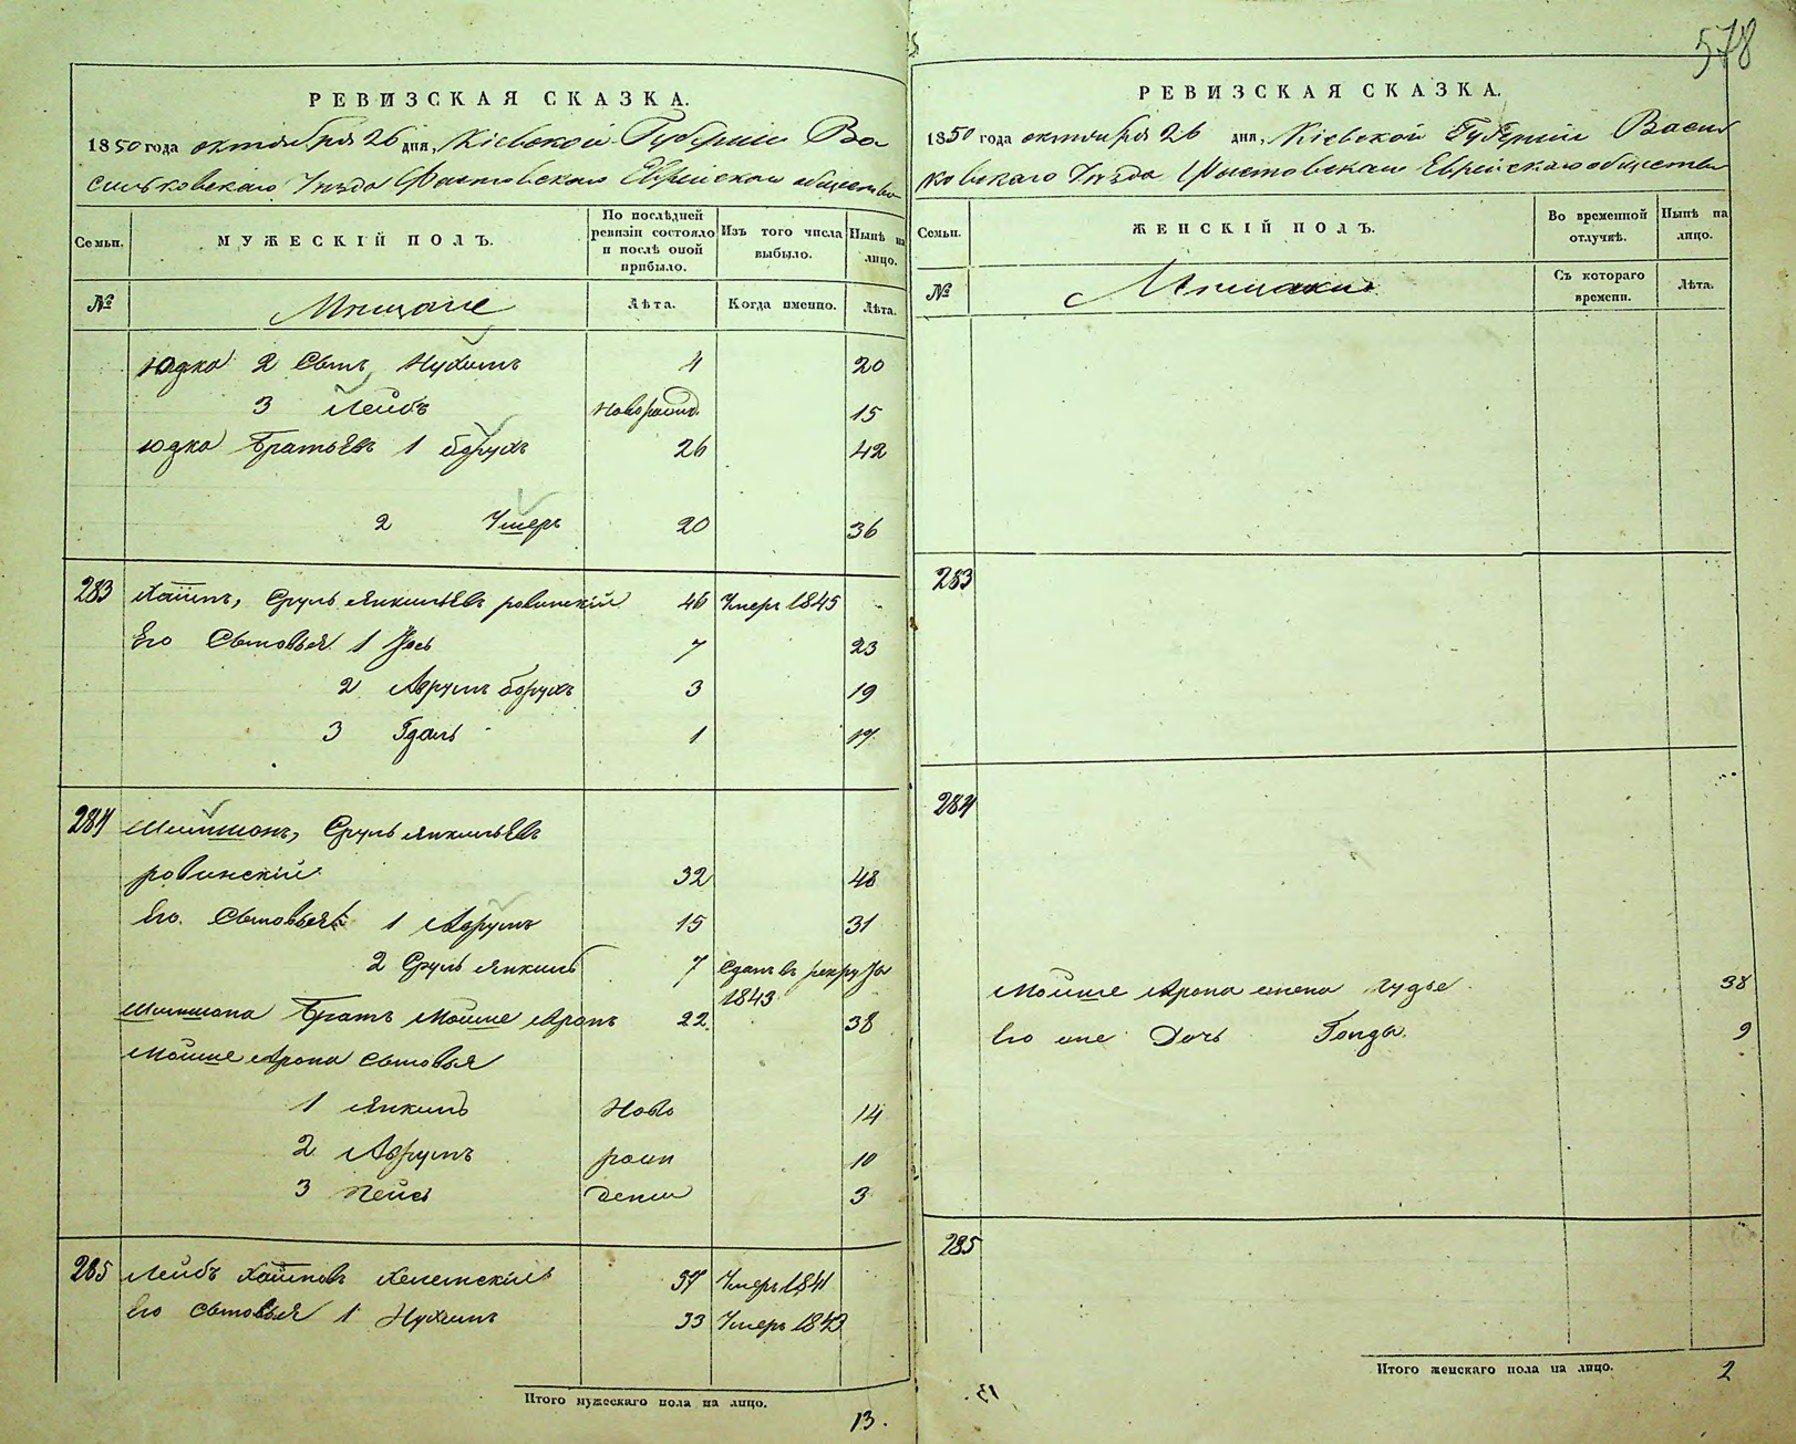 578
РЕВИЗСКАЯ СКАЗКА.
1850 года октября 26 дня, Кіевской Губерніи Ва
сильковскаго Уѣзда Фастовскаго Еврейскаго общества
Семьи.
МУЖЕСКІЙ ПОЛЪ.
По послѣдней ревизіи состояло и послѣ оной прибыло.
Изъ того числа выбыло.
Нынѣ на лицо.
№
Мѣщане
Лѣта.
Когда именно.
Лѣта.
Юдка 2 Сынъ Нухимъ 4 20
3 Лейбъ новорожд. 15
Юдка Братьевъ 1 Борухъ 26 42
2 Ушеръ 20 36
283 Хаимъ, Сруль Янкильевъ ровинскій 46 Умеръ 1845
Его Сыновья 1 Іось 7 23
2 Аврумъ Борухъ 3 19
3 Гдаль 1 17
284 Шимшонъ, Сруль Янкильевъ
ровинскій 32 48
Его Сыновья 1 Аврумъ 15 31
2 Сруль Янкиль 7 Сданъ въ рекруты
1843
Шимшона Братъ Мойше Аронъ 22 38
Мойше Арона Сыновья
1 Янкиль Ново 14
2 Аврумъ рож 10
3 Пейсъ денн 3
285 Лейбъ Хаимовъ 37 Умеръ 1841
Его Сыновья 1 Нухимъ 33 Умеръ 1843
Итого мужескаго пола на лицо.
13.
РЕВИЗСКАЯ СКАЗКА.
1850 года октября 26 дня, Кіевской Губерніи Васил
ковскаго Уѣзда Фастовскаго Еврейскаго общества
Семьи.
ЖЕНСКІЙ ПОЛЪ.
Во временной отлучкѣ.
Нынѣ на лицо.
№
Мѣщанки
Съ котораго времени.
Лѣта.
283
284
Мойше Арона жена 38
Его же Дочь Голда 9
285
Итого женскаго пола на лицо.
2